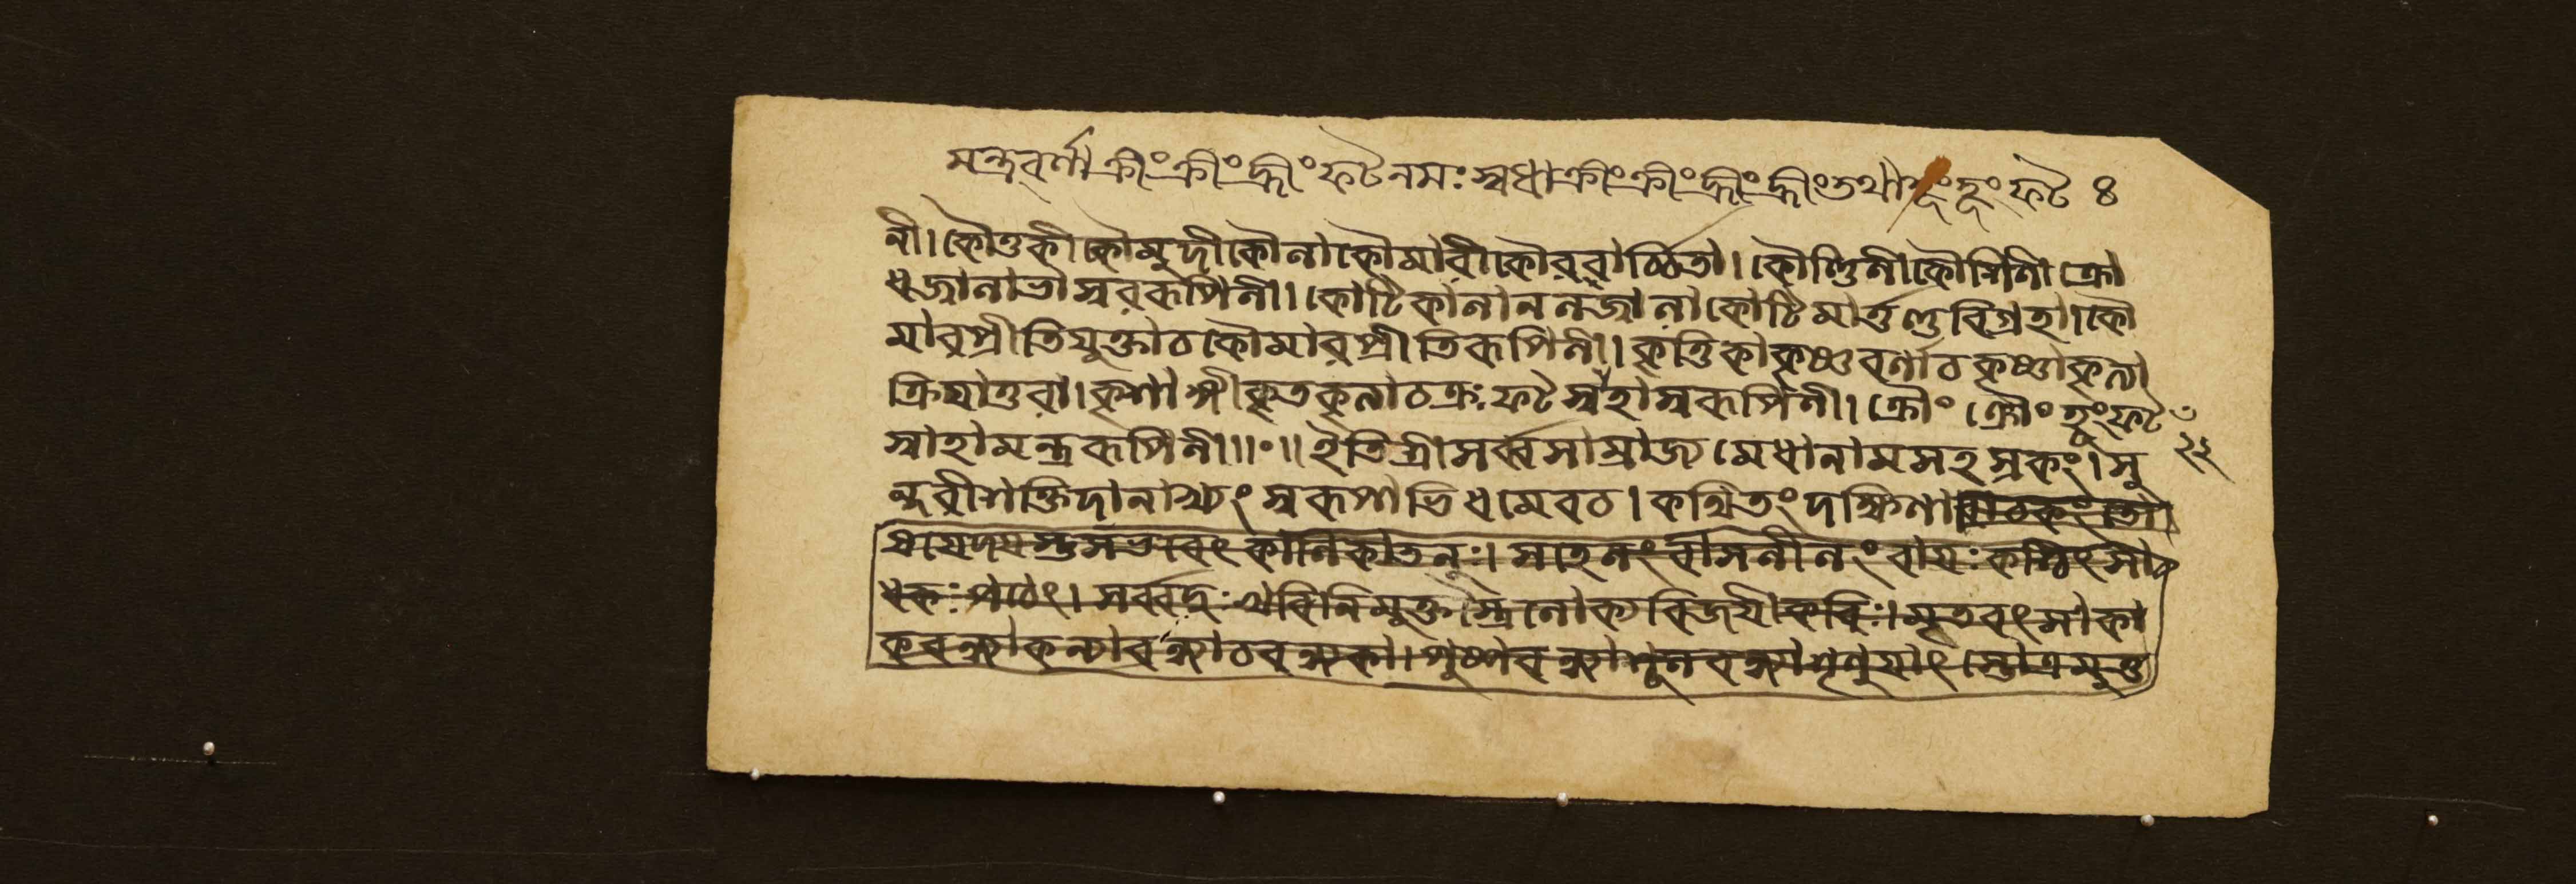 মন্ত্রবর্ণা ক্রীং ক্রীং হ্রীং ফট্ নমঃ স্বধা ক্রীং ক্রীং হ্রীং হ্রীং তথা হূং হূং ফট্ ৪
নী। কৌতুকী কৌমুদী কৌলা কৌমারী কৌরবার্চ্চিতা। কৌণ্ডিনী কৌশিনী ক্রো
ধজ্বালাভাস্বররূপিনী। কোটিকালানলজ্বালা কোটিমার্ত্তণ্ডবিগ্রহা। কৌ
মারপ্রীতিযুক্তা চ কৌমারপ্রীতিরূপিনী। কৃত্তিকা কৃষ্ণবর্ণা চ কৃষ্ণা কৃত্যা
ক্রিয়াতুরা। কৃশাঙ্গী কৃতকৃত্যা চ ক্রঃ ফট্ স্বাহাস্বরূপিনী। ক্রৌং ক্রৌং হূং ফট্ ৩
স্বাহা মন্ত্ররূপিনী॥০॥ ইতি শ্রীসর্ব্বসাম্রাজ্যমেধানামসহস্রকং। সু ২২
ন্দরীশক্তিদানাখ্যং স্বরূপাভিধমেব চ। কথিতং দক্ষিণা
যঃ কালিকাতনুঃ। মোহনং
ধকঃ পঠেৎ। সর্ব্বদুঃখবিনির্মুক্তস্ত্রৈলোক্যবিজয়ী কবিঃ। মৃতবৎসা কা
কবন্ধ্যা কন্যাবন্ধ্যা চ বন্ধ্যকা। পুষ্পবন্ধ্যা শূলবন্ধ্যা শৃণুয়াৎ স্তোত্রমুত্ত